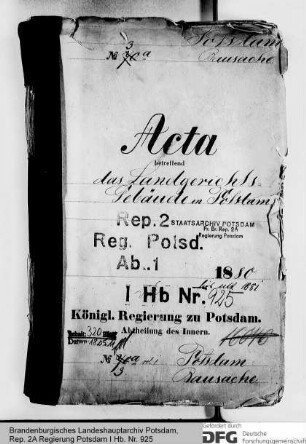 Potsdam
3
№ 70a Bausache
Acta
betreffend
das Landgerichts-
Gebäude in Potsdam
Rep. 2 STAATSARCHIV POTSDAM
Pr. Br. Rep. 2A
Regierung Potsdam
Reg. Potsd.
Ab..1
1880
bis 1881
I Hb Nr. 925
Königl. Regierung zu Potsdam.
Abtheilung des Innern.
320
Datum
№ Potsdam
3
Bausache
Brandenburgisches Landeshauptarchiv Potsdam,
Rep. 2A Regierung Potsdam I Hb. Nr. 925
Gefördert durch
DFG Deutsche
Forschungsgemeinschaft